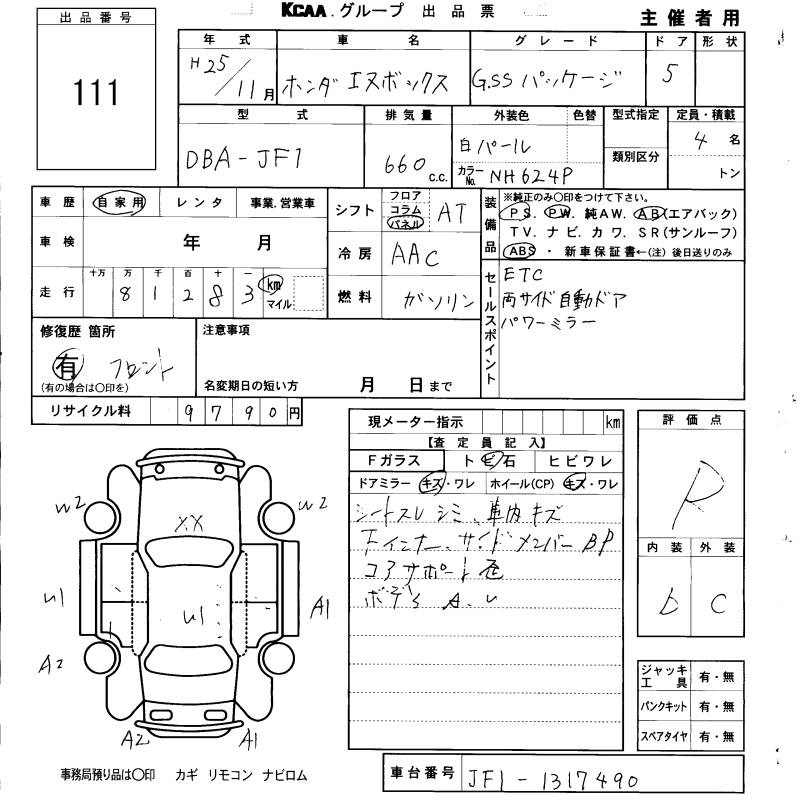 KCAA グループ 出品票
主催者用
出品番号
111
年式 車名 グレード ドア 形状
H25/11月 ホンダ エヌボックス G.SS パッケージ 5
型式 排気量 外装色 色替 型式指定 定員・積載
DBA-JF1 660 c.c. 白パール 類別区分 4名
カラーNo. NH624P トン
車歴 自家用 レンタ 事業.営業車
車検 年 月
走行 十万 万 千 百 十 一
8 1 2 8 3 km マイル
シフト フロア コラム パネル AT
冷房 AAC
燃料 ガソリン
装備品 ※純正のみ○印をつけて下さい。
PS. PW. 純AW. AB(エアバック)
TV. ナビ. カワ. SR(サンルーフ)
ABS・新車保証書←(注)後日送りのみ
セールスポイント
ETC
両サイド自動ドア
パワーミラー
修復歴 箇所
有 フロント
(有の場合は○印を)
注意事項
名変期日の短い方 月 日まで
リサイクル料 9790円
現メーター指示 km
【査定員記入】
Fガラス トビ石 ヒビワレ
ドアミラー キズ・ワレ ホイール(CP) キズ・ワレ
シートスレ シミ、車内キズ
インナー、サイドメンバー BP
コアサポート
ボデー A.U
評価点
R
内装 外装
D C
ジャッキ工具 有・無
パンクキット 有・無
スペアタイヤ 有・無
W2 W2
XX
U1 U1 A1
A2
A2 A1
事務局預り品は○印 カギ リモコン ナビロム
車台番号 JF1-1317490